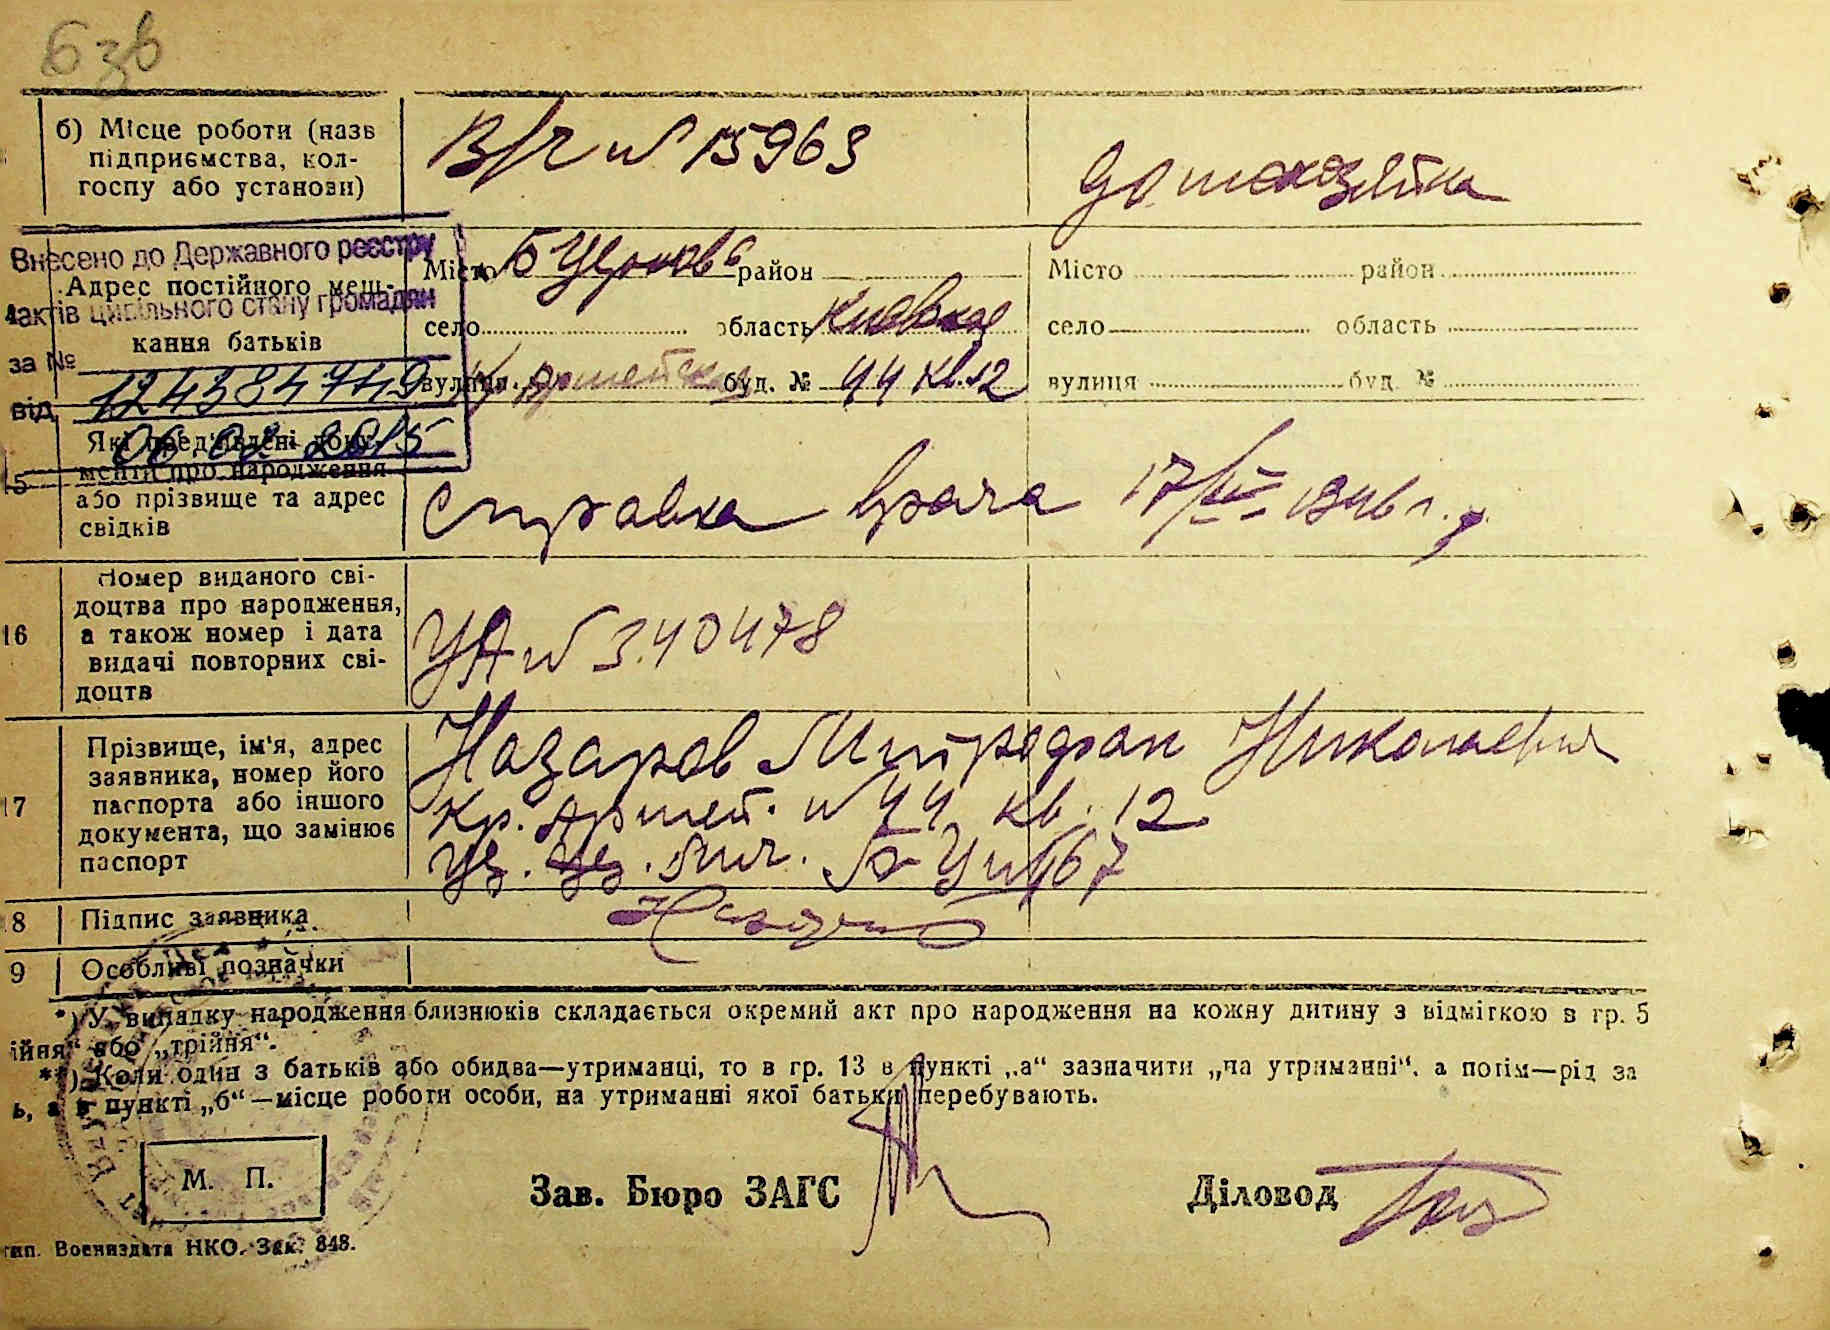 б) Місце роботи (назв
підприємства, кол-
госпу або установи)
В/ч № 15963
домохозяйка
Внесено до Державного реєстру
Адрес постійного меш-
актів цивільного стану громадян
кання батьків
за №
1243847749
від
06 02 2015
Місто Б Церковь район
село область Киевская
вулиця Кр. Армейская буд. № 44 кв. 12
Місто район
село область
вулиця буд. №
15
Які пред'явлені доку-
менти про народження
або прізвище та адрес
свідків
Справка врача 17/IV-1946 г.
16
Номер виданого сві-
доцтва про народження,
а також номер і дата
видачі повторних сві-
доцтв
УА № 340478
17
Прізвище, ім'я, адрес
заявника, номер його
паспорта або іншого
документа, що замінює
паспорт
Назаров Митрофан Николаевич
Кр. Армей. № 44 кв. 12
8 Підпис заявника
9 Особливі позначки
*) У випадку народження близнюків складається окремий акт про народження на кожну дитину з відміткою в гр. 5
ійня" або „трійня".
**) Коли один з батьків або обидва—утриманці, то в гр. 13 в пункті „а" зазначити „на утриманні", а потім—рід за
ь, а в пункті „б"—місце роботи особи, на утриманні якої батьки перебувають.
М. П.
Зав. Бюро ЗАГС
Діловод
тип. Воениздата НКО. Зак. 848.